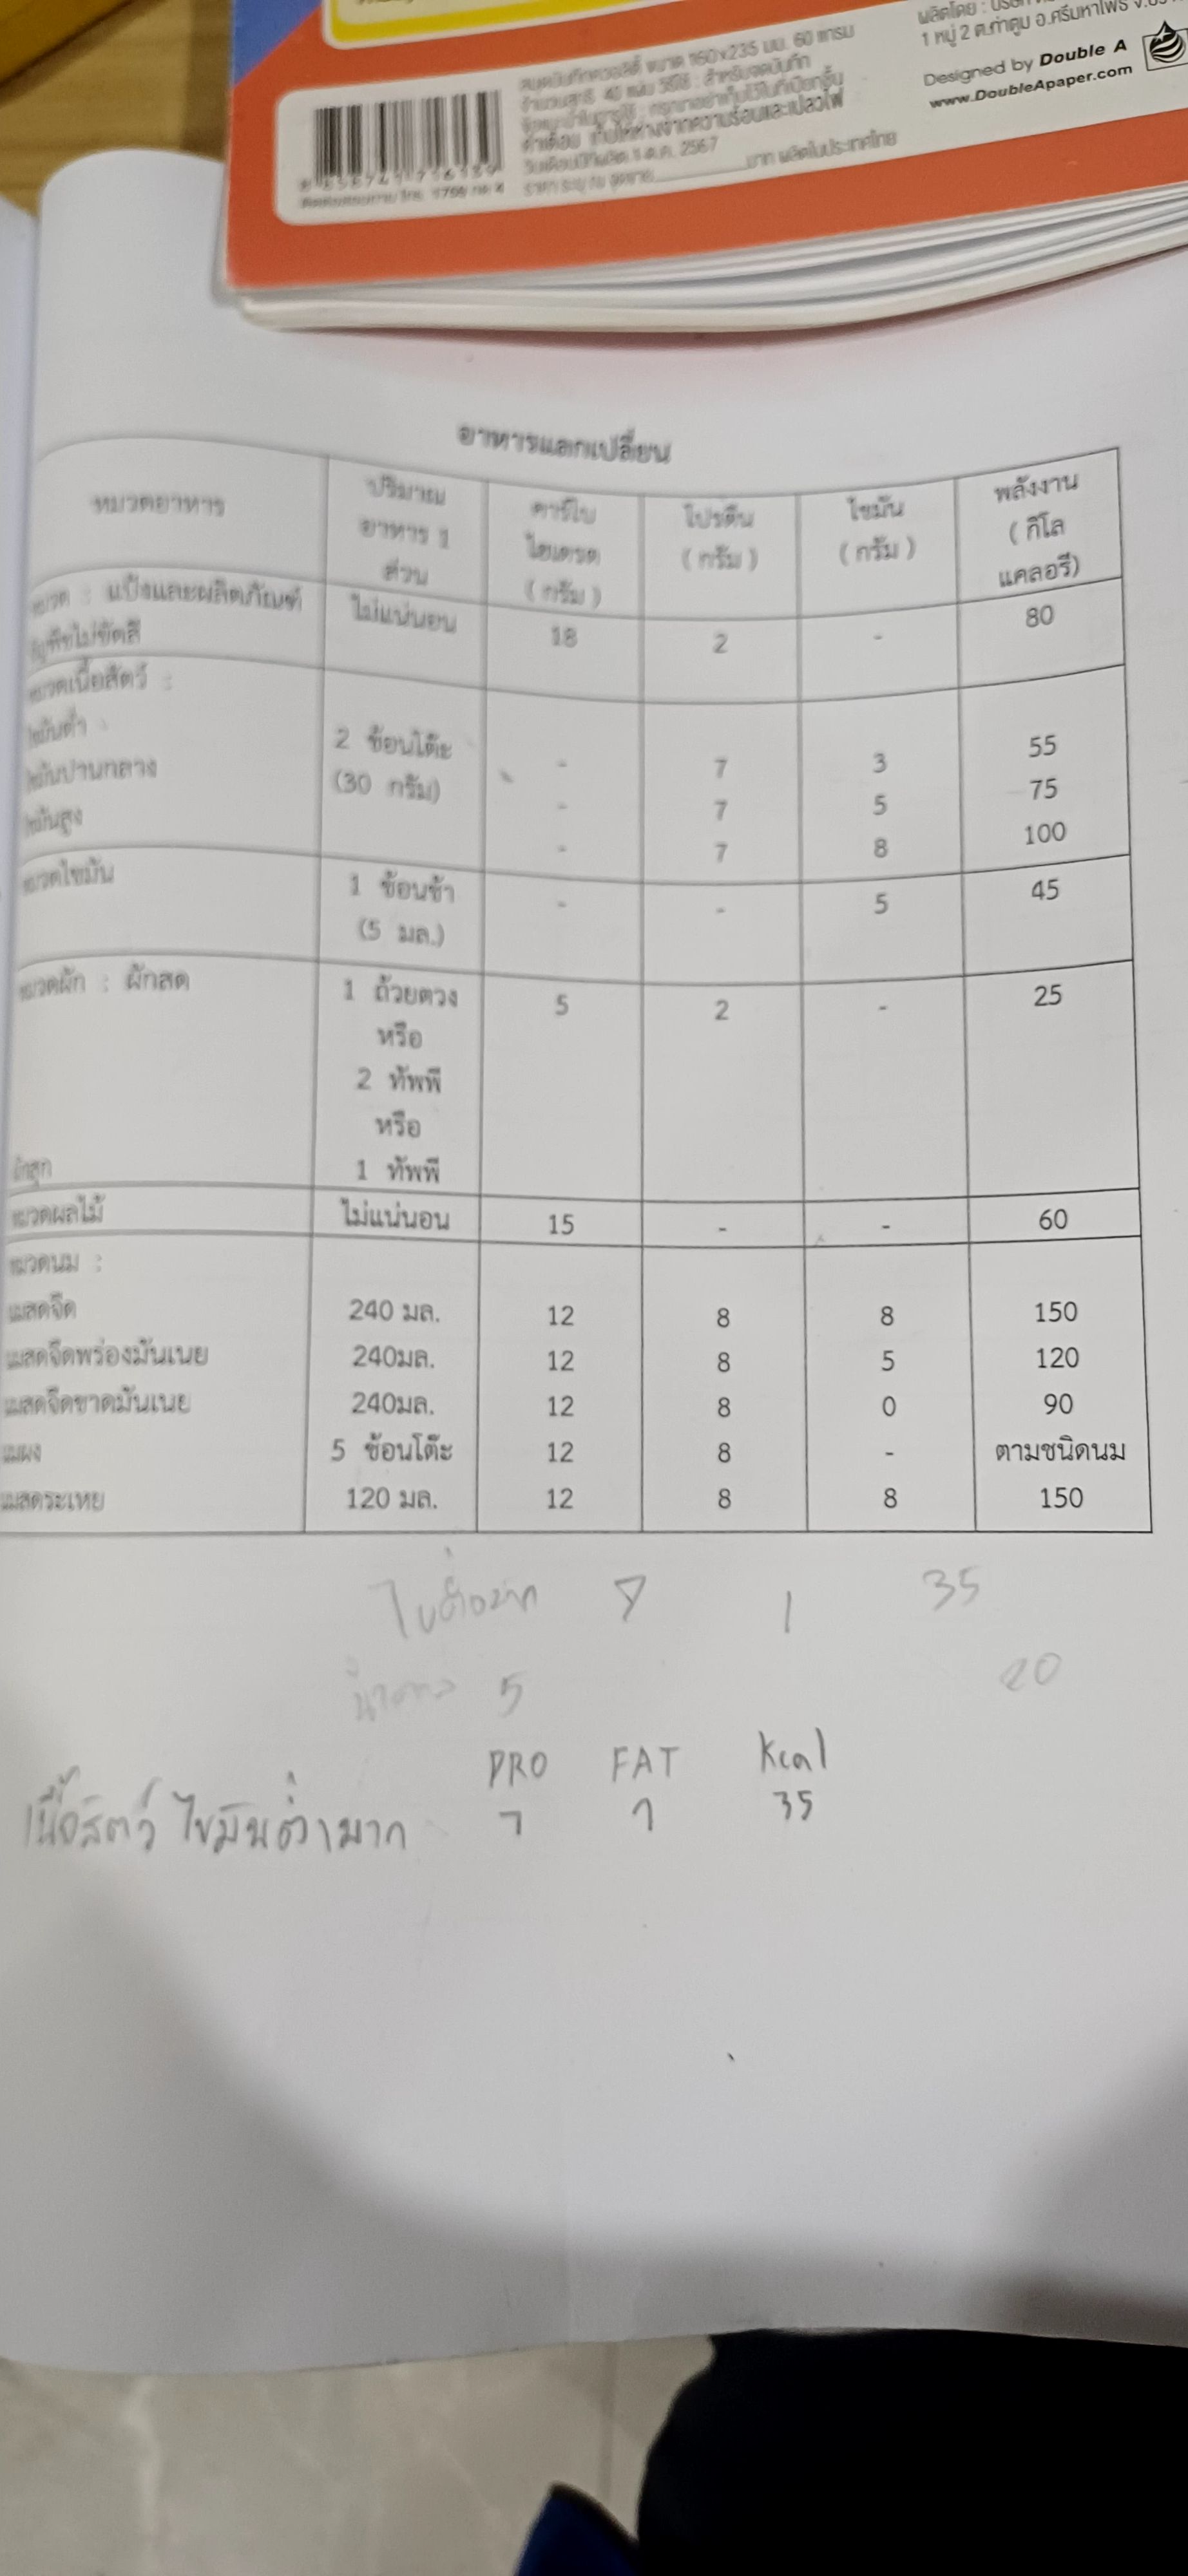 สมุดบันทึก ขนาด 160x235 มม. 60 แกรม
จำนวนสุทธิ 40 แผ่น วิธีใช้ : สำหรับจดบันทึก
คำเตือน เก็บให้ห่างจากความร้อนและเปลวไฟ
2567
บาท ผลิตในประเทศไทย
ผลิตโดย :
1 หมู่ 2 ต.ท่าตูม อ.ศรีมหาโพธิ
Designed by Double A
www.DoubleApaper.com
อาหารแลกเปลี่ยน
หมวดอาหาร ปริมาณอาหาร 1 ส่วน คาร์โบไฮเดรต (กรัม) โปรตีน (กรัม) ไขมัน (กรัม) พลังงาน (กิโลแคลอรี)
หมวด : แป้งและผลิตภัณฑ์ ไม่แน่นอน 18 2 - 80
ธัญพืชไม่ขัดสี
หมวดเนื้อสัตว์ :
ไขมันต่ำ : 2 ช้อนโต๊ะ - 7 3 55
ไขมันปานกลาง (30 กรัม) - 7 5 75
ไขมันสูง - 7 8 100
หมวดไขมัน 1 ช้อนชา - - 5 45
(5 มล.)
หมวดผัก : ผักสด 1 ถ้วยตวง 5 2 - 25
หรือ
2 ทัพพี
หรือ
ผักสุก 1 ทัพพี
หมวดผลไม้ ไม่แน่นอน 15 - - 60
หมวดนม :
นมสดจืด 240 มล. 12 8 8 150
นมสดจืดพร่องมันเนย 240มล. 12 8 5 120
นมสดจืดขาดมันเนย 240มล. 12 8 0 90
นมผง 5 ช้อนโต๊ะ 12 8 - ตามชนิดนม
นมสดระเหย 120 มล. 12 8 8 150
7 1 35
5 20
PRO FAT Kcal
เนื้อสัตว์ ไขมันต่ำมาก 7 1 35